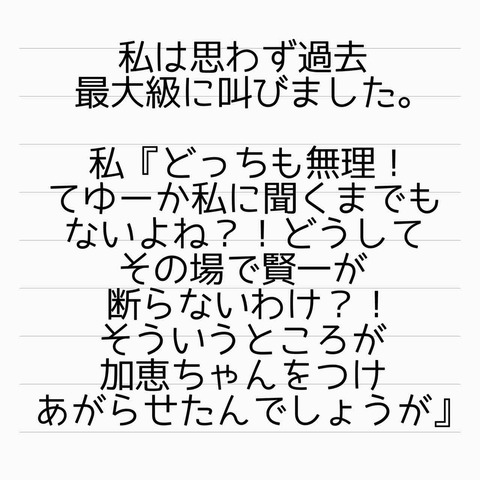 私は思わず過去
最大級に叫びました。
私『どっちも無理！
てゆーか私に聞くまでも
ないよね？！どうして
その場で賢一が
断らないわけ？！
そういうところが
加恵ちゃんをつけ
あがらせたんでしょうが』